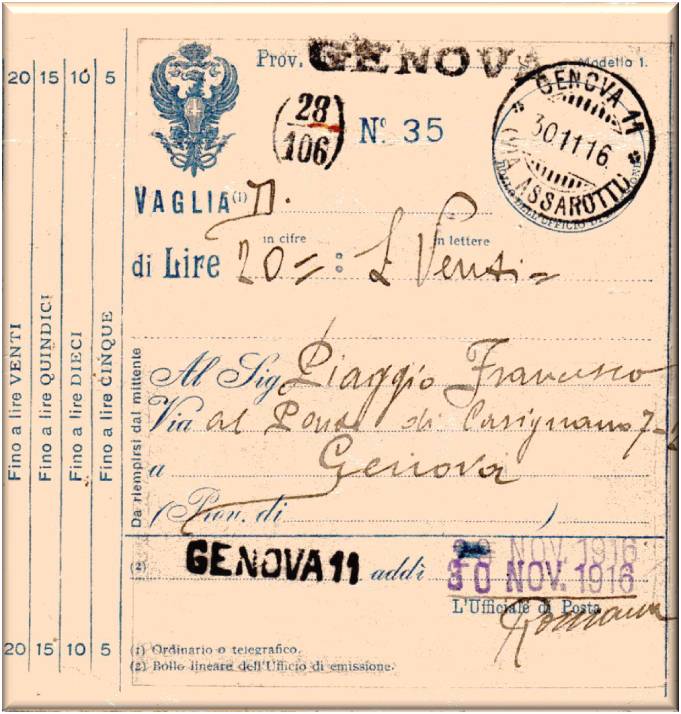 Prov. GENOVA Modello 1.
20 15 10 5
28
106
Nº 35
GENOVA 11
30.11.16.
(VIA ASSAROTTI)
VAGLIA (1) D.
in cifre in lettere
di Lire 20 = : £ Venti =
Fino a lire VENTI
Fino a lire QUINDICI
Fino a lire DIECI
Fino a lire CINQUE
Da riempirsi dal mittente
Al Sig. Piaggio Francesco
Via al Ponte di Carignano 7-
a Genova
(Prov. di )
(2) GENOVA 11 addì 30 NOV. 1916
30 NOV. 1916
L'Ufficiale di Posta
20 15 10 5
(1) Ordinario o telegrafico.
(2) Bollo lineare dell'Ufficio di emissione.